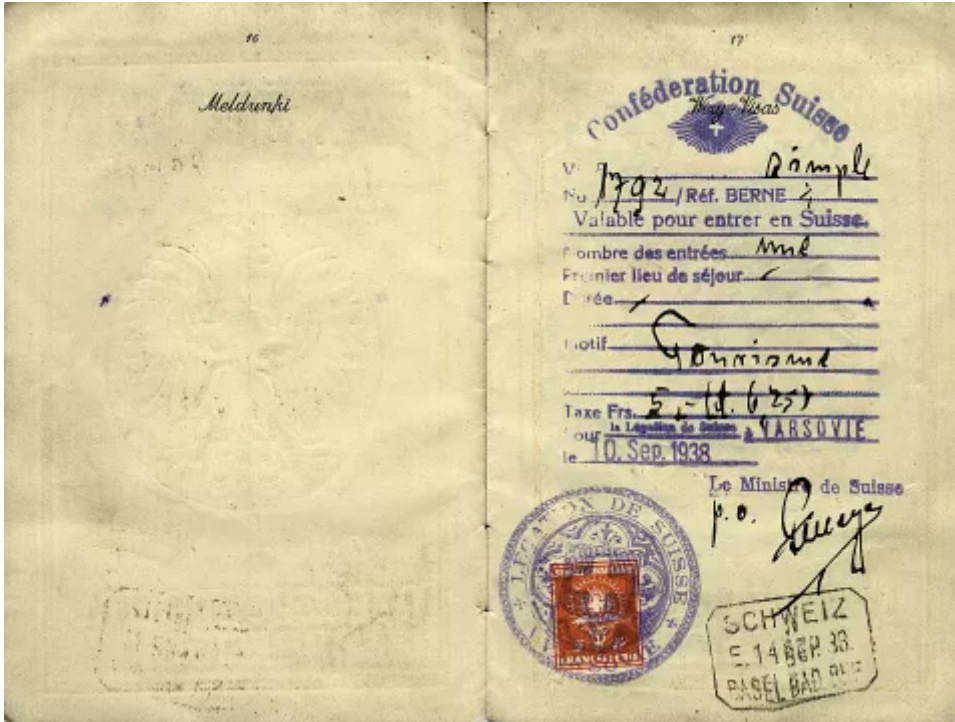 16
Meldunki
17
Confédération Suisse
Wizy-Visas
simple
No 1792 / Réf. BERNE
Valable pour entrer en Suisse.
Nombre des entrées une
Premier lieu de séjour
Durée
Motif Tourisme
Taxe Frs. 5.-
Pour la Légation de Suisse à VARSOVIE
le 10. Sep. 1938
Le Ministre de Suisse
p. o.
LÉGATION DE SUISSE
SCHWEIZ
E. 14 SEP. 38
BASEL BAD